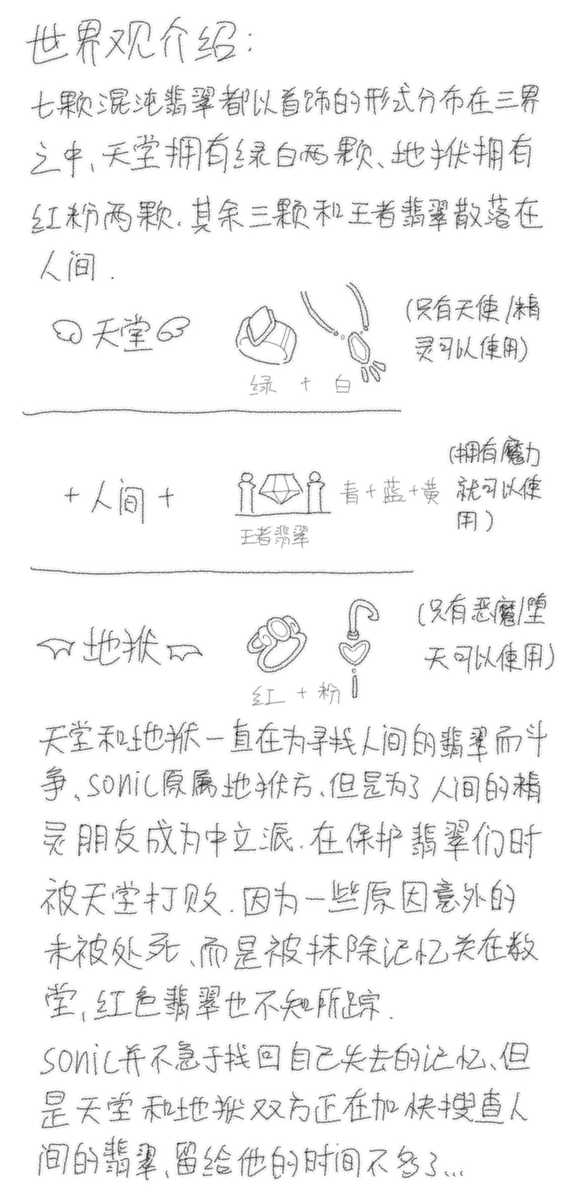 世界观介绍：
七颗混沌翡翠都以首饰的形式分布在三界
之中、天堂拥有绿白两颗、地狱拥有
红粉两颗.其余三颗和王者翡翠散落在
人间.
天堂
(只有天使/精
灵可以使用)
绿 + 白
+人间+
(拥有魔力
就可以使
用)
青+蓝+黄
王者翡翠
地狱
(只有恶魔/堕
天可以使用)
红 + 粉
天堂和地狱一直在为寻找人间的翡翠而斗
争、sonic原属地狱方、但是为了人间的精
灵朋友成为中立派.在保护翡翠们时
被天堂打败.因为一些原因意外的
未被处死、而是被抹除记忆关在教
堂,红色翡翠也不知所踪.
sonic并不急于找回自己失去的记忆、但
是天堂和地狱双方正在加快搜查人
间的翡翠、留给他的时间不多了...